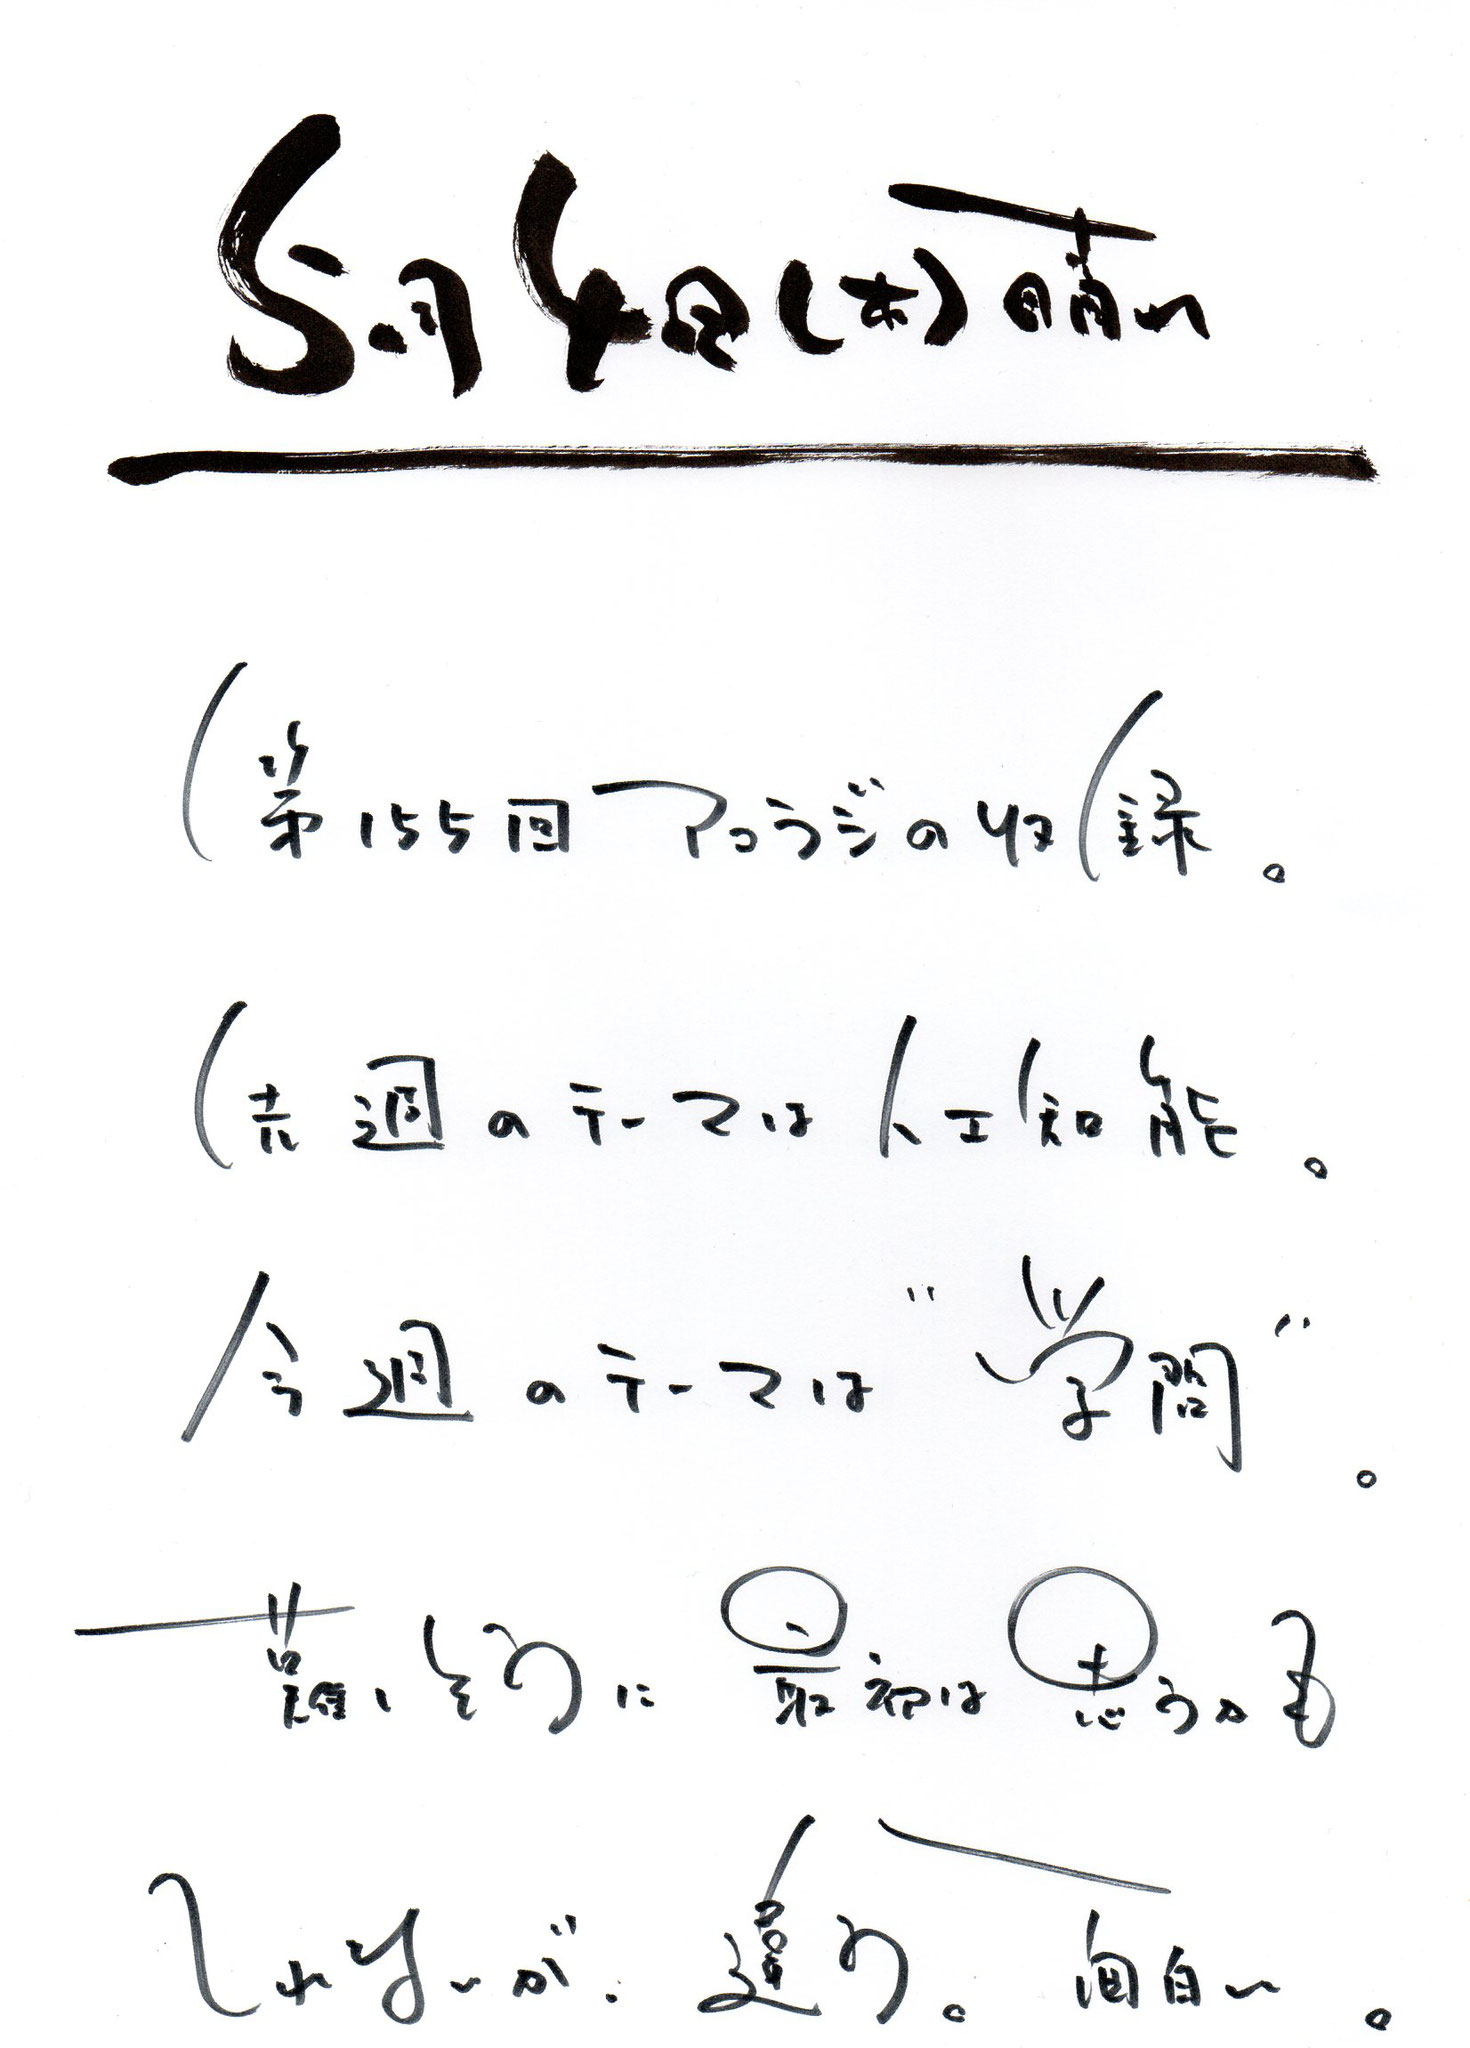 5月4日(木)晴れ
第155回アコラジの収録。
先週のテーマは人工知能。
今週のテーマは"学問"。
難しそうに最初は思うかも
しれないが、違う。面白い。